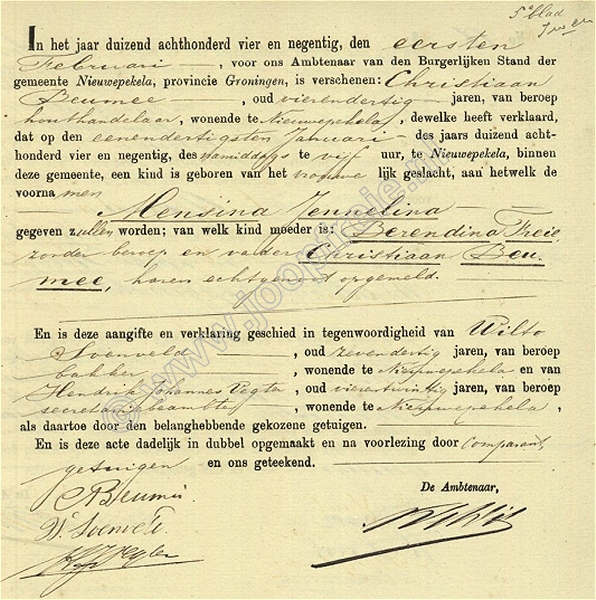 5e blad
In het jaar duizend achthonderd vier en negentig, den eersten
Februari, voor ons Ambtenaar van den Burgerlijken Stand der
gemeente Nieuwepekela, provincie Groningen, is verschenen: Christiaan
Beumee, oud vierendertig jaren, van beroep
houthandelaar, wonende te Nieuwepekela, dewelke heeft verklaard,
dat op den eenendertigsten Januari des jaars duizend acht-
honderd vier en negentig, des namiddags te vijf uur, te Nieuwepekela, binnen
deze gemeente, een kind is geboren van het vrouwe lijk geslacht, aan hetwelk de
voorna men
Mensina Jennelina
gegeven zullen worden; van welk kind moeder is: Berendina Freie,
zonder beroep en vader Christiaan Beu-
mee, haren echtgenoot opgemeld.
En is deze aangifte en verklaring geschied in tegenwoordigheid van Wilto
Soenveld, oud zevendertig jaren, van beroep
bakker, wonende te Nieuwepekela en van
Hendrik Johannes Vegter, oud vierentwintig jaren, van beroep
secretariebeambte, wonende te Nieuwepekela,
als daartoe door den belanghebbende gekozene getuigen.
En is deze acte dadelijk in dubbel opgemaakt en na voorlezing door comparant,
getuigen en ons geteekend.
De Ambtenaar,
C Beumee
W. Soenveld
HJ Vegter
© www.jooptreie.nl